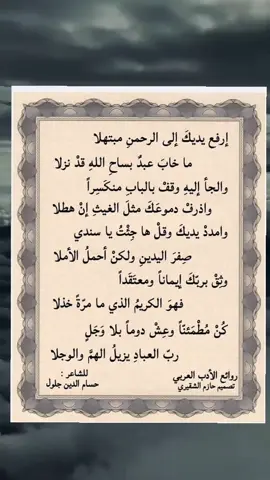 إرفع يديكَ إلى الرحمنِ مبتهلا
ما خابَ عبدٌ بساحِ اللهِ قدْ نزلا
والجأ إليهِ وقفْ بالبابِ منكَسِراً
واذرفْ دموعَكَ مثلَ الغيثِ إنْ هطلا
وامددْ يديكَ وقلْ ها جِئْتُ يا سندي
صِفرَ اليدينِ ولكنْ أحملُ الأملا
وثِقْ بربّكَ إيماناً ومعتَقَداً
فهوَ الكريمُ الذي ما مرّةً خذلا
كُنْ مُطْمَئنّاً وعِشْ دوماً بلا وَجَلٍ
ربّ العبادِ يزيلُ الهمَّ والوجلا
روائع الأدب العربي
تصميم حازم الشقيري
للشاعر :
حسام الدين جلول